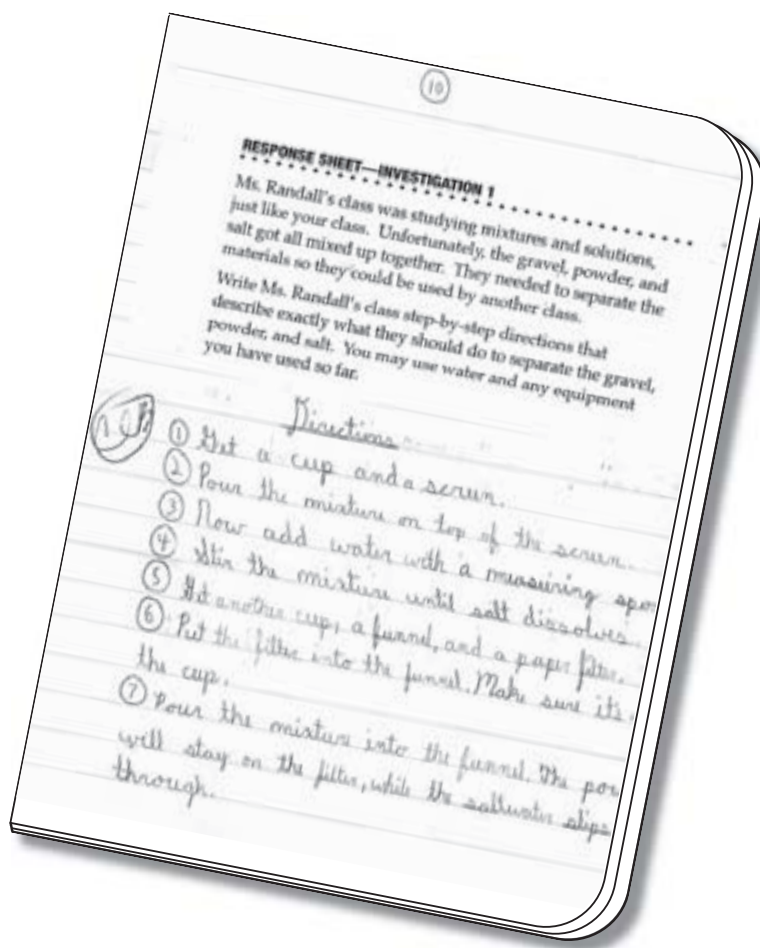 10
RESPONSE SHEET—INVESTIGATION 1
Ms. Randall's class was studying mixtures and solutions,
just like your class. Unfortunately, the gravel, powder, and
salt got all mixed up together. They needed to separate the
materials so they could be used by another class.
Write Ms. Randall's class step-by-step directions that
describe exactly what they should do to separate the gravel,
powder, and salt. You may use water and any equipment
you have used so far.
Directions
1 Get a cup and a screen.
2 Pour the mixture on top of the screen.
3 Now add water with a measuring spoo
4 Stir the mixture until salt dissolves.
5 Get another cup, a funnel, and a paper filter.
6 Put the filter into the funnel. Make sure it's
the cup.
7 Pour the mixture into the funnel. The pow
will stay on the filter, while the saltwater slips
through.